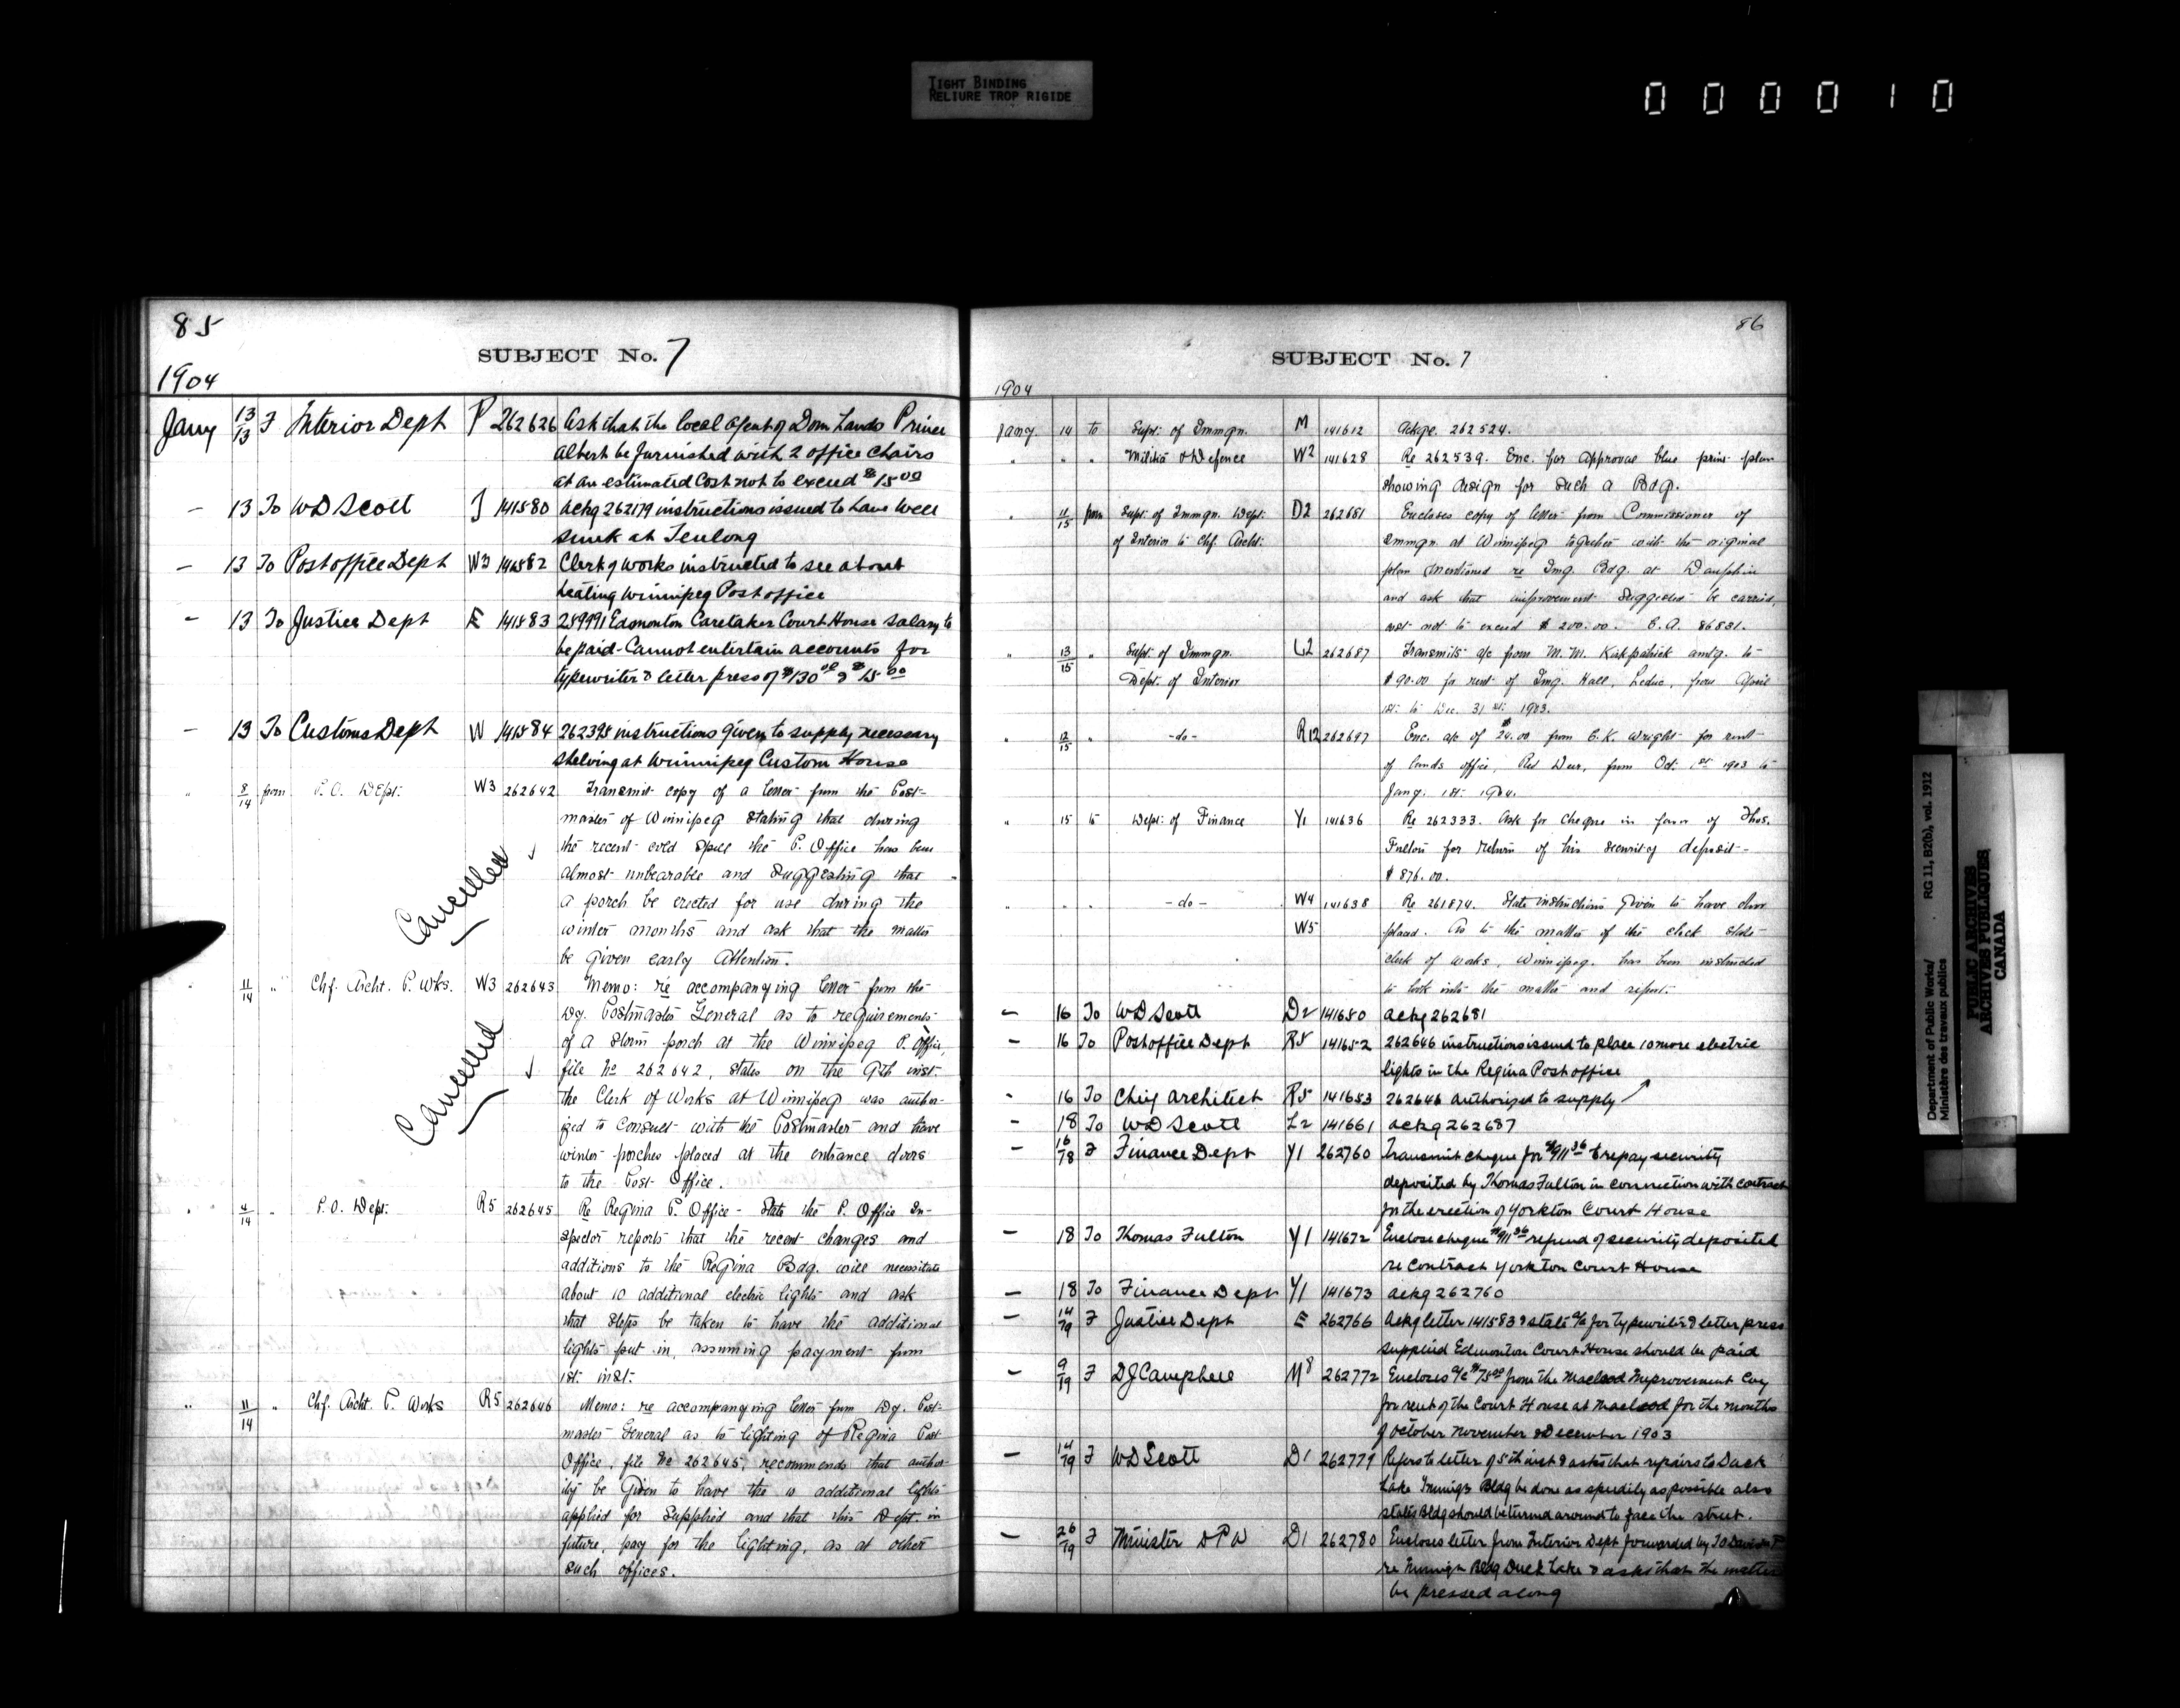 TIGHT BINDING
RELIURE TROP RIGIDE
000010
85
SUBJECT No. 7
1904
Jany 13/13 F Interior Dept P 262626 Ask that the local agent of Dom Lands Prince
Albert be furnished with 2 office chairs
at an estimated cost not to exceed $15.00
— 13 To WD Scott T 141580 Ackg 262179 instructions issued to have well
sunk at Teulong
— 13 To Postoffice Dept W3 141582 Clerk of works instructed to see about
heating Winnipeg Postoffice
— 13 To Justice Dept E 141583 259991 Edmonton Caretaker Court House salary to
be paid - Cannot entertain accounts for
typewriter & letter press of $130.00 & $15.00
— 13 To Customs Dept W 141584 262395 instructions given to supply necessary
shelving at Winnipeg Custom House
" 8/14 from P.O. Dept. W3 262642 Transmit copy of a letter from the Post-
master of Winnipeg stating that during
the recent cold spell the P. Office has been
almost unbearable and suggesting that
a porch be erected for use during the
winter months and ask that the matter
be given early attention.
Cancelled
" 11/14 " Chf. Archt. P. Wks. W3 262643 Memo: re accompanying letter from the
Dy. Postmaster General as to requirements
of a storm porch at the Winnipeg P. Office,
file No 262642, states on the 9th inst.
the Clerk of Works at Winnipeg was author-
ized to consult with the Postmaster and have
winter porches placed at the entrance doors
to the Post Office.
Cancelled
" 4/14 " P.O. Dept. R5 262645 Re Regina P. Office - State the P. Office In-
spector reports that the recent changes and
additions to the Regina Bdg. will necessitate
about 10 additional electric lights and ask
that steps be taken to have the additional
lights put in, assuming payment from
1st. inst.
" 11/14 " Chf. Archt. P. Works R5 262646 Memo: re accompanying letter from Dy. Post-
master General as to lighting of Regina Post
Office, file No 262645, recommends that author-
ity be given to have the 10 additional lights
applied for supplied and that this Dept. in
future, pay for the lighting, as at other
such offices.
86
SUBJECT No. 7
1904
Jany. 14 to Supt. of Immgn. M 141612 Ackge. 262524.
" " " Militia & Defence W2 141628 Re 262539. Enc. for approval blue print plan
showing design for such a Bdg.
" 11/15 from Supt. of Immgn. Dept. D2 262681 Encloses copy of letter from Commissioner of
of Interior to Chf. Archt. Immgn. at Winnipeg together with the original
plan mentioned re Img. Bdg. at Dauphin
and ask that improvement suggested be carried,
cost not to exceed $200.00. C.A. 86831.
" 13/15 " Supt. of Immgn. L2 262687 Transmits a/c from M.M. Kirkpatrick amtg. to
Dept. of Interior $90.00 for rent of Img. Hall, Leduc, from April
1st. to Dec. 31st. 1903.
" 12/15 " -do- R12 262697 Enc. a/c of $24.00 from C.K. Wright for rent
of lands office, Red Deer, from Oct. 1st 1903 to
Jany. 1st. 1904.
" 15 to Dept. of Finance Y1 141636 Re 262333. Ask for cheque in favor of Thos.
Fulton for return of his security deposit-
$876.00.
" " " -do- W4 141638 Re 261874. State instructions given to have door
W5 placed. As to the matter of the clock state
clerk of works, Winnipeg, has been instructed
to look into the matter and report.
— 16 To WD Scott D2 141650 Ackg 262681
— 16 To Postoffice Dept R5 141652 262646 instructions issued to place 10 more electric
lights in the Regina Postoffice
— 16 To Chief Architect R5 141653 262646 authorized to supply
— 18 To WD Scott L2 141661 ackg 262687
— 16/18 F Finance Dept Y1 262760 Transmit cheque for $911.36 to repay security
deposited by Thomas Fulton in connection with contract
for the erection of Yorkton Court House
— 18 To Thomas Fulton Y1 141672 Enclose cheque $911.36 refund of security deposited
re contract Yorkton Court House
— 18 To Finance Dept Y1 141673 ackg 262760
— 14/19 F Justice Dept E 262766 Ackg letter 141583 & state a/c for typewriter & letter press
supplied Edmonton Court House should be paid
— 9/19 F DJ Campbell M8 262772 Encloses a/c $75.00 from the Macleod Improvement Coy
for rent of the Court House at Macleod for the months
of October November & December 1903
— 14/19 F WD Scott D1 262779 Refers to letter of 5th inst & asks that repairs to Duck
Lake Immign Bldg be done as speedily as possible also
states Bldg should be turned around to face the street.
— 26/19 F Minister DPW D1 262780 Encloses letter from Interior Dept forwarded by TO Davis
re Immign Bldg Duck Lake & asks that the matter
be pressed along
Department of Public Works/ RG 11, B2(b), vol. 1912
Ministère des travaux publics
PUBLIC ARCHIVES
ARCHIVES PUBLIQUES
CANADA